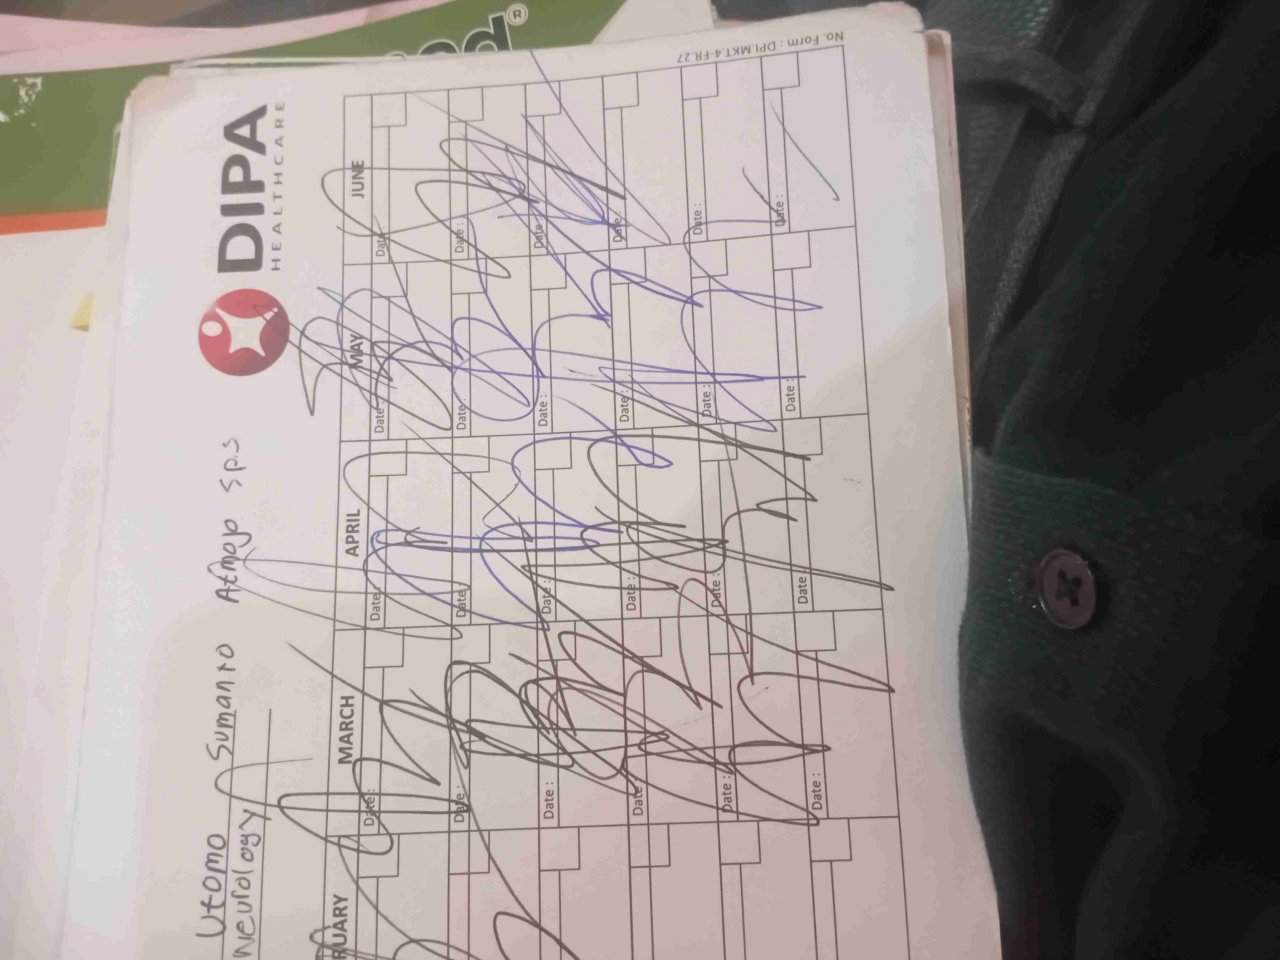 ed®
DIPA
HEALTHCARE
Utomo Sumanto Atmojo Sp.S
Neurology
RUARY MARCH APRIL MAY JUNE
Date : Date : Date : Date :
Date : Date : Date : Date :
Date : Date : Date : Date :
Date : Date : Date : Date :
Date : Date : Date : Date :
Date : Date : Date : Date :
No. Form : DPI.MKT-4-FR.27